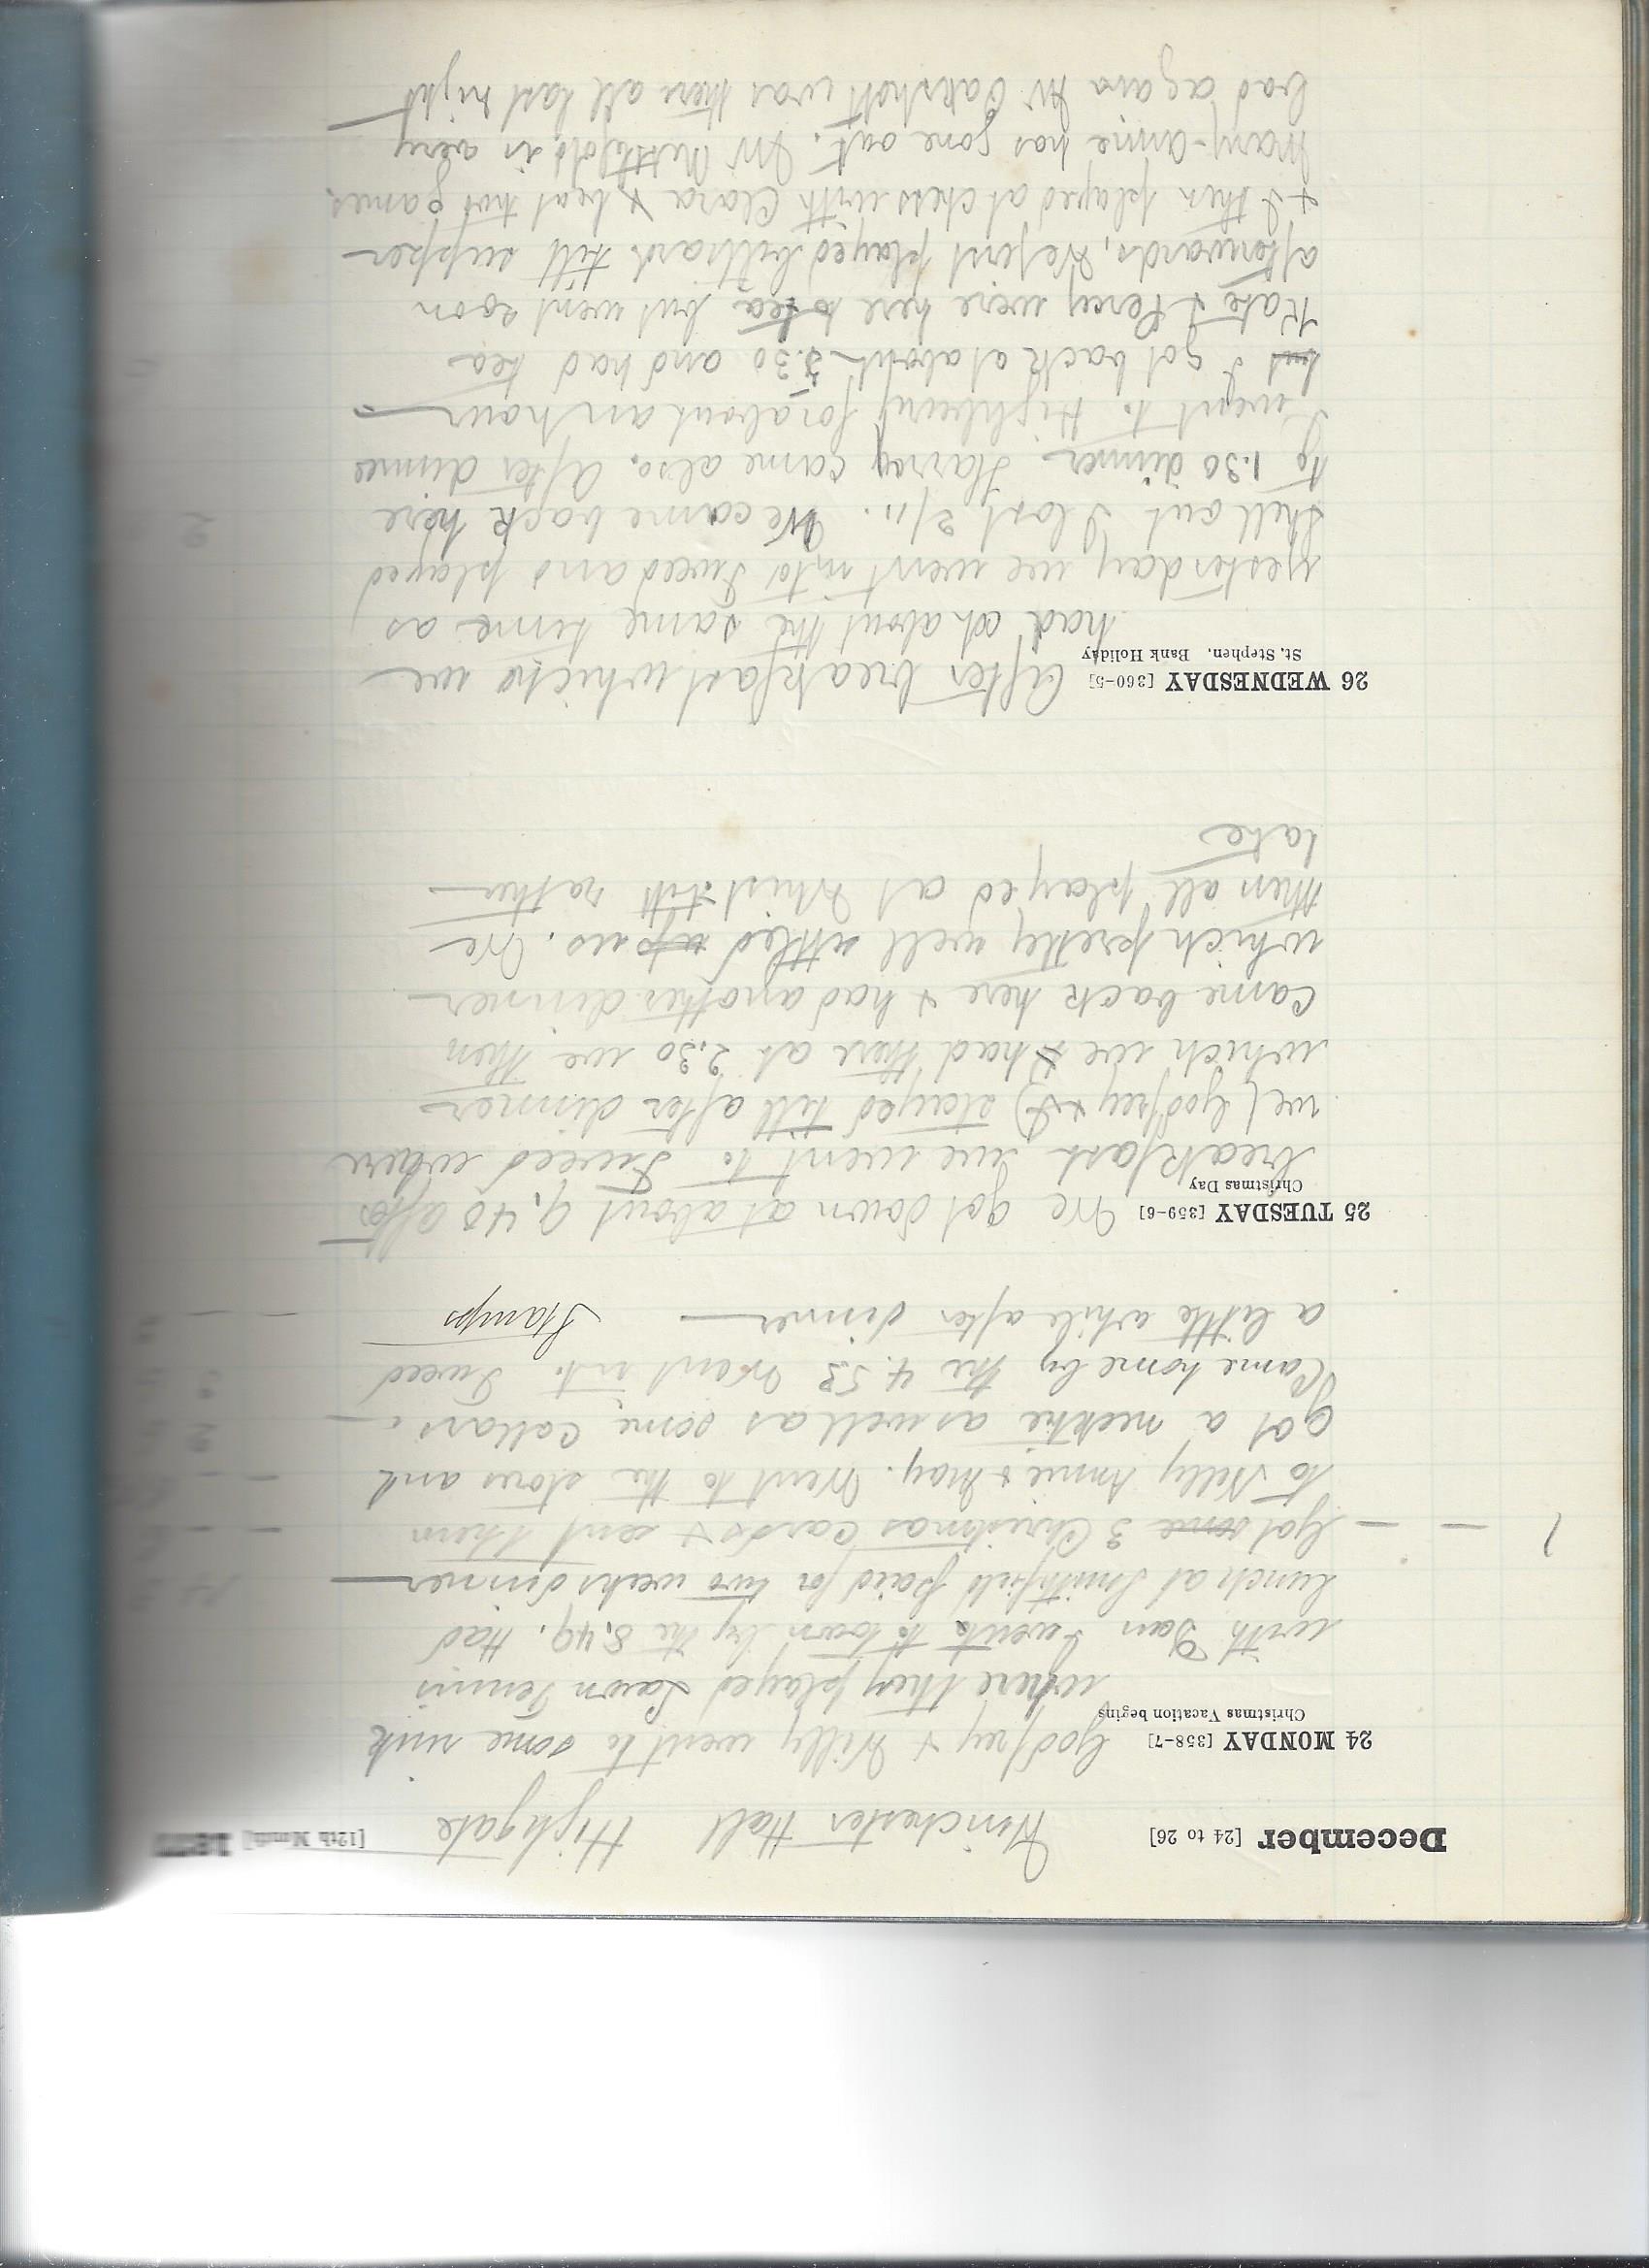 December [24 to 26] Winchester Hall Highgate [12th Month] 1877
24 MONDAY [358-7] Godfrey & Willy went to some rink
Christmas Vacation begins
where they played Lawn Tennis
with Dan I went to town by the 8.49. Had
lunch at Smithfield paid for two weeks dinner
1 Got some 3 Christmas cards & sent them
to Nelly Annie & May. Went to the stores and
got a necktie as well as some collars.
Came home by the 4.53 Went into Tweed
a little while after dinner Stamps
25 TUESDAY [359-6] We got down at about 9.40 after
Christmas Day
breakfast we went to Tweed where
we (Godfrey & I) stayed till after dinner
which we had there at 2.30 we then
came back here & had another dinner
which pretty well settled us. We
then all played at Whist till rather
late
26 WEDNESDAY [360-5] After breakfast which we
St. Stephen. Bank Holiday
had at about the same time as
yesterday we went into Tweed and played
shell out I lost 2/11. We came back here
to 1.30 dinner Harry came also. After dinner
I went to Highbury for about an hour
but I got back at about 5.30 and had tea
Kate & Percy were here to tea but went soon
afterwards. We first played billiards till supper
& I then played at chess with Clara & beat two games.
Mary-Anne has gone out. Mr Nettlefold is very
bad again Mr Oakshott was there all last night
2